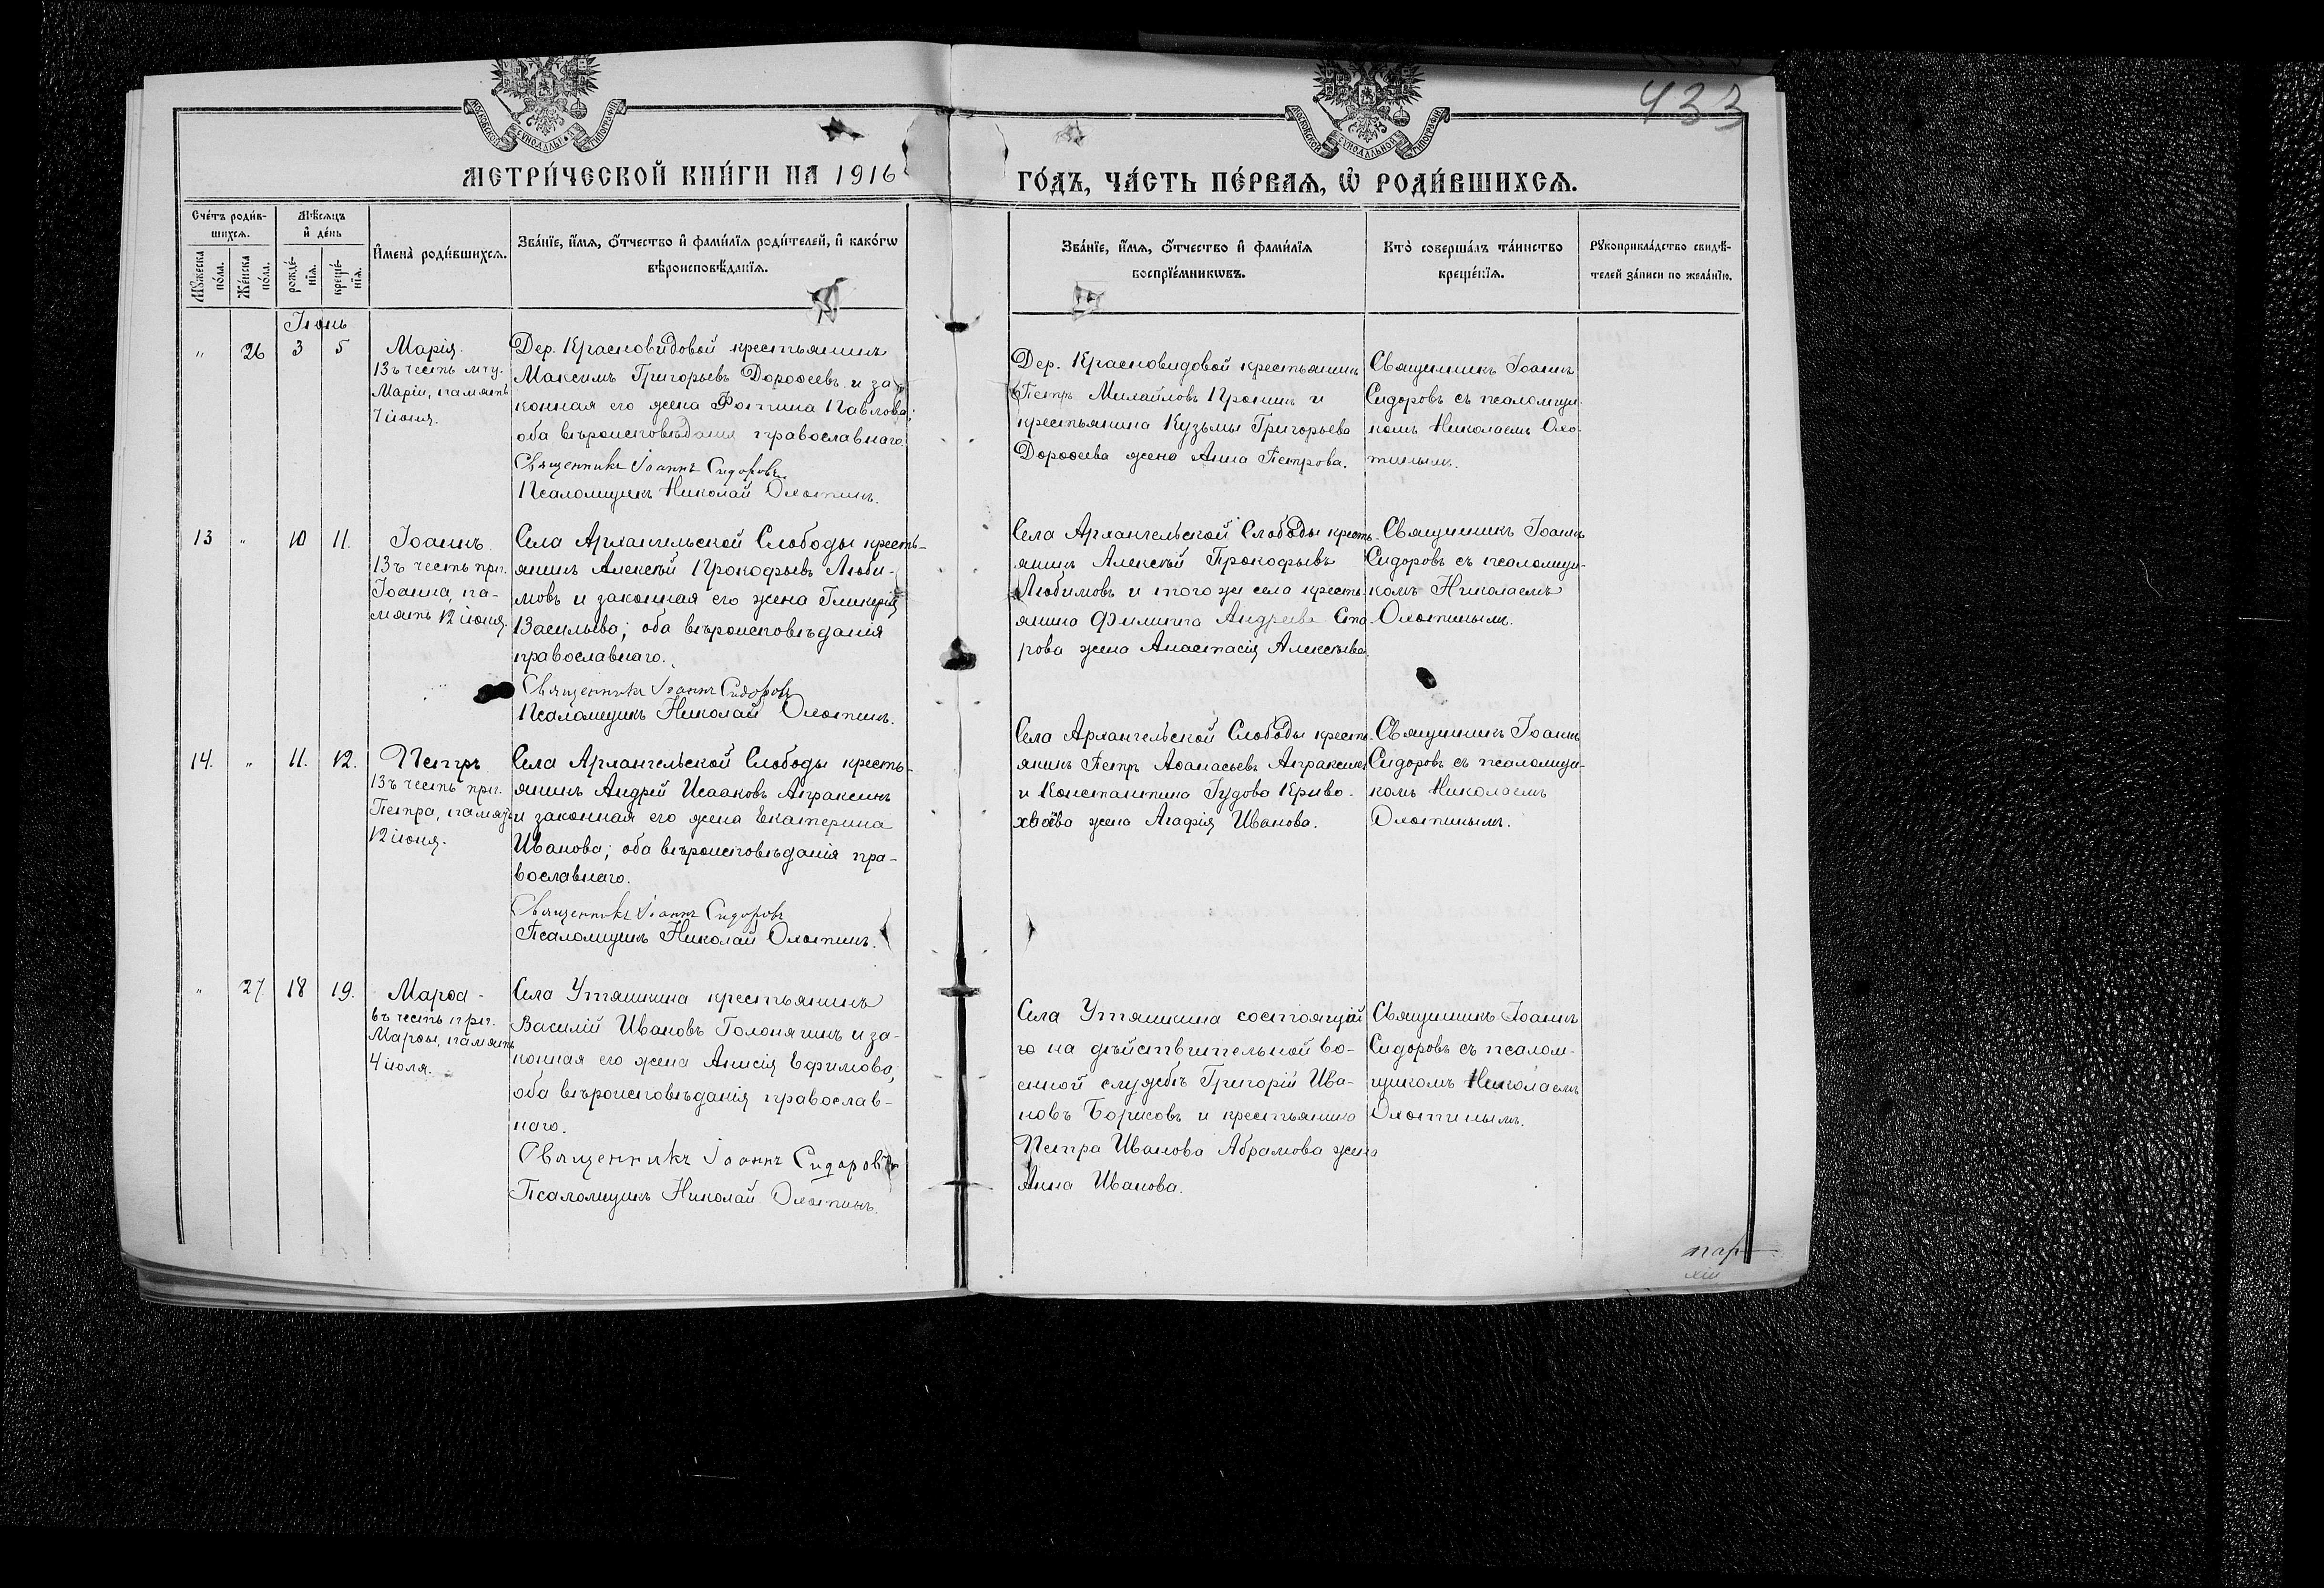 433
МОСКОВСКОЙ СѴНОДАЛЬНОЙ ТИПОГРАФІИ
МОСКОВСКОЙ СѴНОДАЛЬНОЙ ТИПОГРАФІИ
МЕТРИ́ЧЕСКОЙ КНИ́ГИ НА 1916
ГО́ДЪ, ЧА́СТЬ ПЕ́РВАЯ, Ѡ РОДИ́ВШИХСЯ.
Сче́тъ роди́в-
шихся.
Мѣ́сяцъ
и де́нь
Му́жеска
по́ла.
Же́нска
по́ла.
рожде́-
нія.
креще́-
нія.
Имена̀ роди́вшихся.
Зва́ніе, и́мя, о́тчество и фами́лія роди́телей, и како́гѡ
вѣроисповѣ́данія.
Зва́ніе, и́мя, о́тчество и фами́лія
воспріе́мникѡвъ.
Кто̀ соверша́лъ та́инство
креще́нія.
Рукоприкла́дство свидѣ́-
телей за́писи по жела́нію.
Іюнь
" 26 3 5
Марія.
Въ честь мчц.
Маріи, память
7 іюня.
Дер. Красновидовой крестьянинъ
Максимъ Григорьевъ Дороѳеевъ и за-
конная его жена Фотина Павлова;
оба вѣроисповѣданія православнаго.
Священникъ Іоаннъ Сидоровъ.
Псаломщикъ Николай Охотинъ.
Дер. Красновидовой крестьянинъ
Петръ Михайловъ Пронинъ и
крестьянина Кузьмы Григорьева
Дороѳеева жена Анна Петрова.
Священникъ Іоаннъ
Сидоровъ съ псаломщи-
комъ Николаемъ Охо-
тинымъ.
13 " 10 11.
Іоаннъ.
Въ честь прп.
Іоанна, па-
мять 12 іюня.
Села Архангельской Слободы кресть-
янинъ Алексѣй Прокофьевъ Люби-
мовъ и законная его жена Гликерія
Васильева; оба вѣроисповѣданія
православнаго.
Священникъ Іоаннъ Сидоровъ
Псаломщикъ Николай Охотинъ.
Села Архангельской Слободы кресть-
янинъ Алексѣй Прокофьевъ
Любимовъ и того же села кресть-
янина Филиппа Андреева Ста-
рова жена Анастасія Алексѣева.
Священникъ Іоаннъ
Сидоровъ съ псаломщи-
комъ Николаемъ
Охотинымъ.
14. " 11. 12.
Петръ
Въ честь прп.
Петра, память
12 іюня.
Села Архангельской Слободы кресть-
янинъ Андрей Исааковъ Апраксинъ
и законная его жена Екатерина
Иванова; оба вѣроисповѣданія пра-
вославнаго.
Священникъ Іоаннъ Сидоровъ
Псаломщикъ Николай Охотинъ.
Села Архангельской Слободы кресть-
янинъ Петръ Аѳанасьевъ Апраксинъ
и Константина Іудова Криво-
хвоева жена Агафія Иванова.
Священникъ Іоаннъ
Сидоровъ съ псаломщи-
комъ Николаемъ
Охотинымъ.
" 27 18 19.
Марѳа -
въ честь прп.
Марѳы, память
4 іюля.
Села Утяшкина крестьянинъ
Василій Ивановъ Голонягинъ и за-
конная его жена Анисія Ефимова;
оба вѣроисповѣданія православ-
наго.
Священникъ Іоаннъ Сидоровъ
Псаломщикъ Николай Охотинъ.
Села Утяшкина состоящій
на дѣйствительной во-
енной службѣ Григорій Ива-
новъ Борисовъ и крестьянина
Петра Иванова Абрамова жена
Анна Иванова.
Священникъ Іоаннъ
Сидоровъ съ псалом-
щикомъ Николаемъ
Охотинымъ.